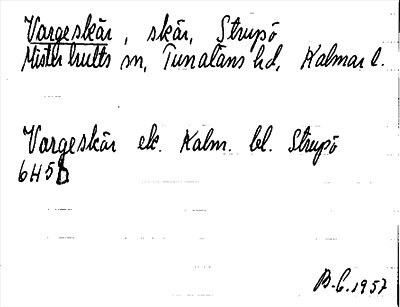 Vargeskär, skär, Strupö
Misterhults sn, Tunaläns hd, Kalmar l.
Vargeskär ek. Kalm. bl. Strupö
6H5b
B.C. 1957